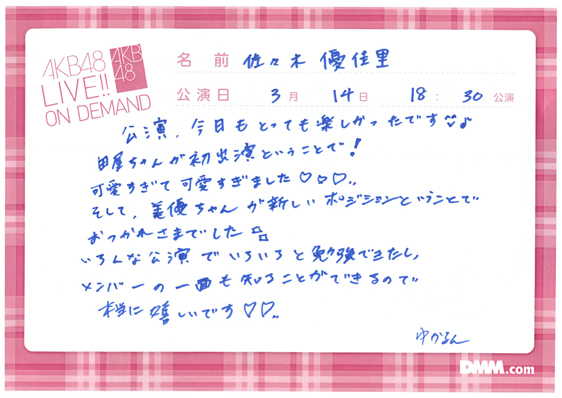 AKB48
LIVE!!
ON DEMAND
AKB
48
名前 佐々木 優佳里
公演日 3月 14日 18:30公演
公演、今日もとっても楽しかったです♡♪
田屋ちゃんが初出演ということで!
可愛すぎて可愛すぎました♡♡♡..
そして、美優ちゃんが新しいポジションということで
おつかれさまでした
いろんな公演でいろいろと勉強できたし、
メンバーの一面も知ることができるので
本当に嬉しいです♡♡..
ゆかるん
DMM.com